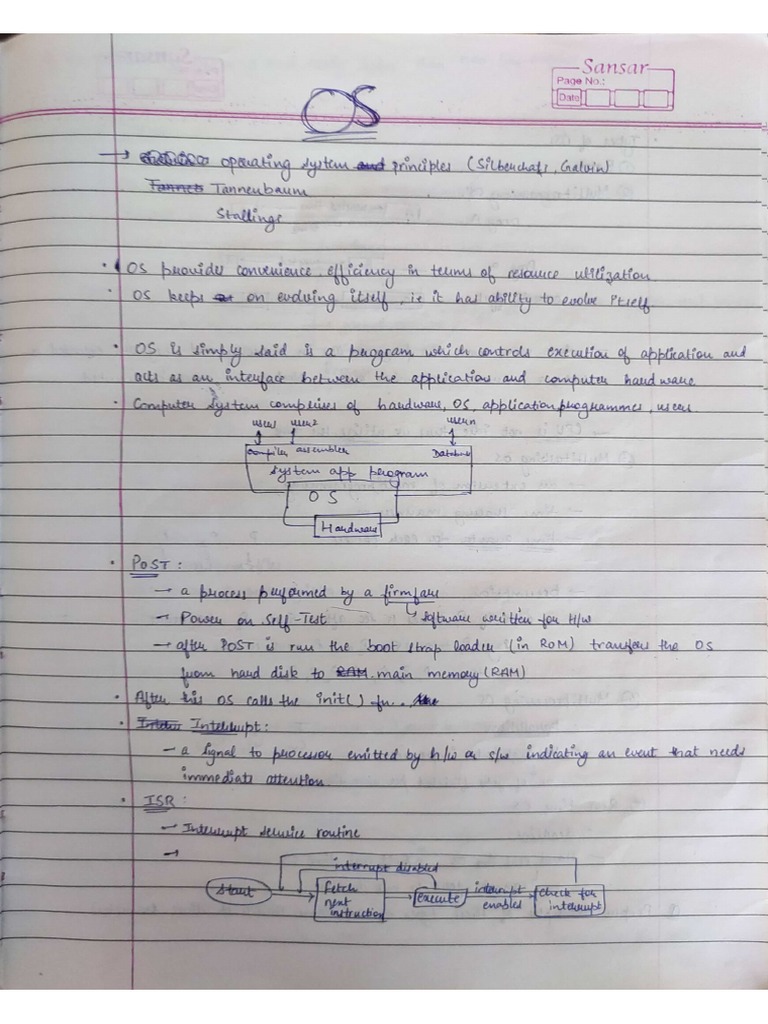 Sansar
Page No.:
Date
OS
→ operating system and principles (Silberchafs, Galvin)
Tannes Tannenbaum
Stallings
• OS provides convenience, efficiency in terms of resource utilization
• OS keeps on evolving itself, i.e it has ability to evolve itself
• OS is simply said is a program which controls execution of application and
acts as an interface between the application and computer hardware.
• Computer System comprises of hardware, OS, application programmes, users
user1 user2 user n
Compiler assembler Database
System app program
OS
Hardware
• POST:
- a process performed by a firmfare
- Power on Self-Test software written for H/w
- after POST is run the boot strap loader (in ROM) transfers the OS
from hard disk to RAM main memory (RAM)
• After this OS calls the init() fn.
• Interrupt:
- a signal to processor emitted by h/w or s/w indicating an event that needs
immediate attention.
• ISR:
- Interrupt service routine
→
interrupt disabled
Start fetch next instruction execute interrupt enabled check for interrupt